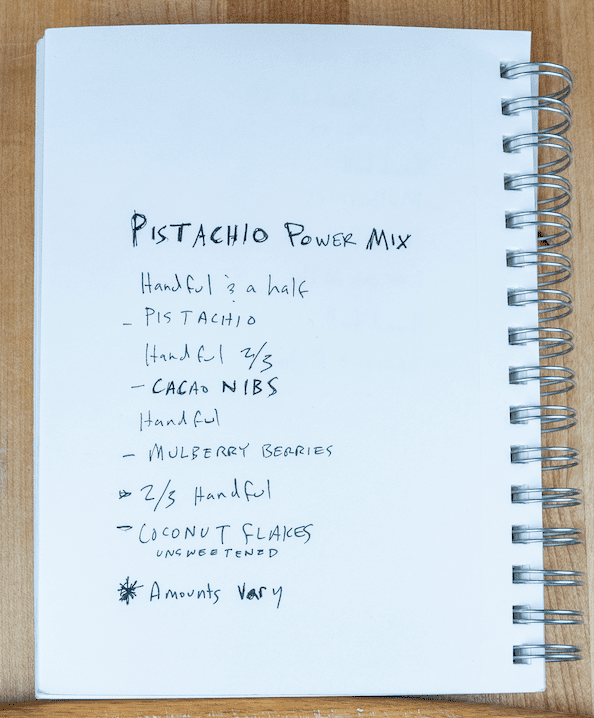 PISTACHIO POWER MIX
Handful & a half
- PISTACHIO
Handful 2/3
- CACAO NIBS
Handful
- MULBERRY BERRIES
- 2/3 Handful
- COCONUT FLAKES
UNSWEETENED
* Amounts Vary